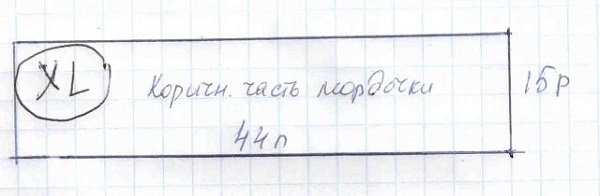 XL Коричн. часть мордочки 15р
44п